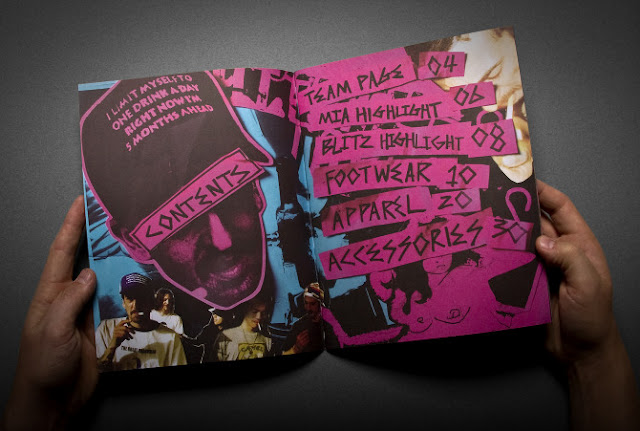 I LIMIT MYSELF TO
ONE DRINK A DAY
RIGHT NOW I'M
5 MONTHS AHEAD
CONTENTS
TEAM PAGE 04
MIA HIGHLIGHT 06
BLITZ HIGHLIGHT 08
FOOTWEAR 10
APPAREL 20
ACCESSORIES 30